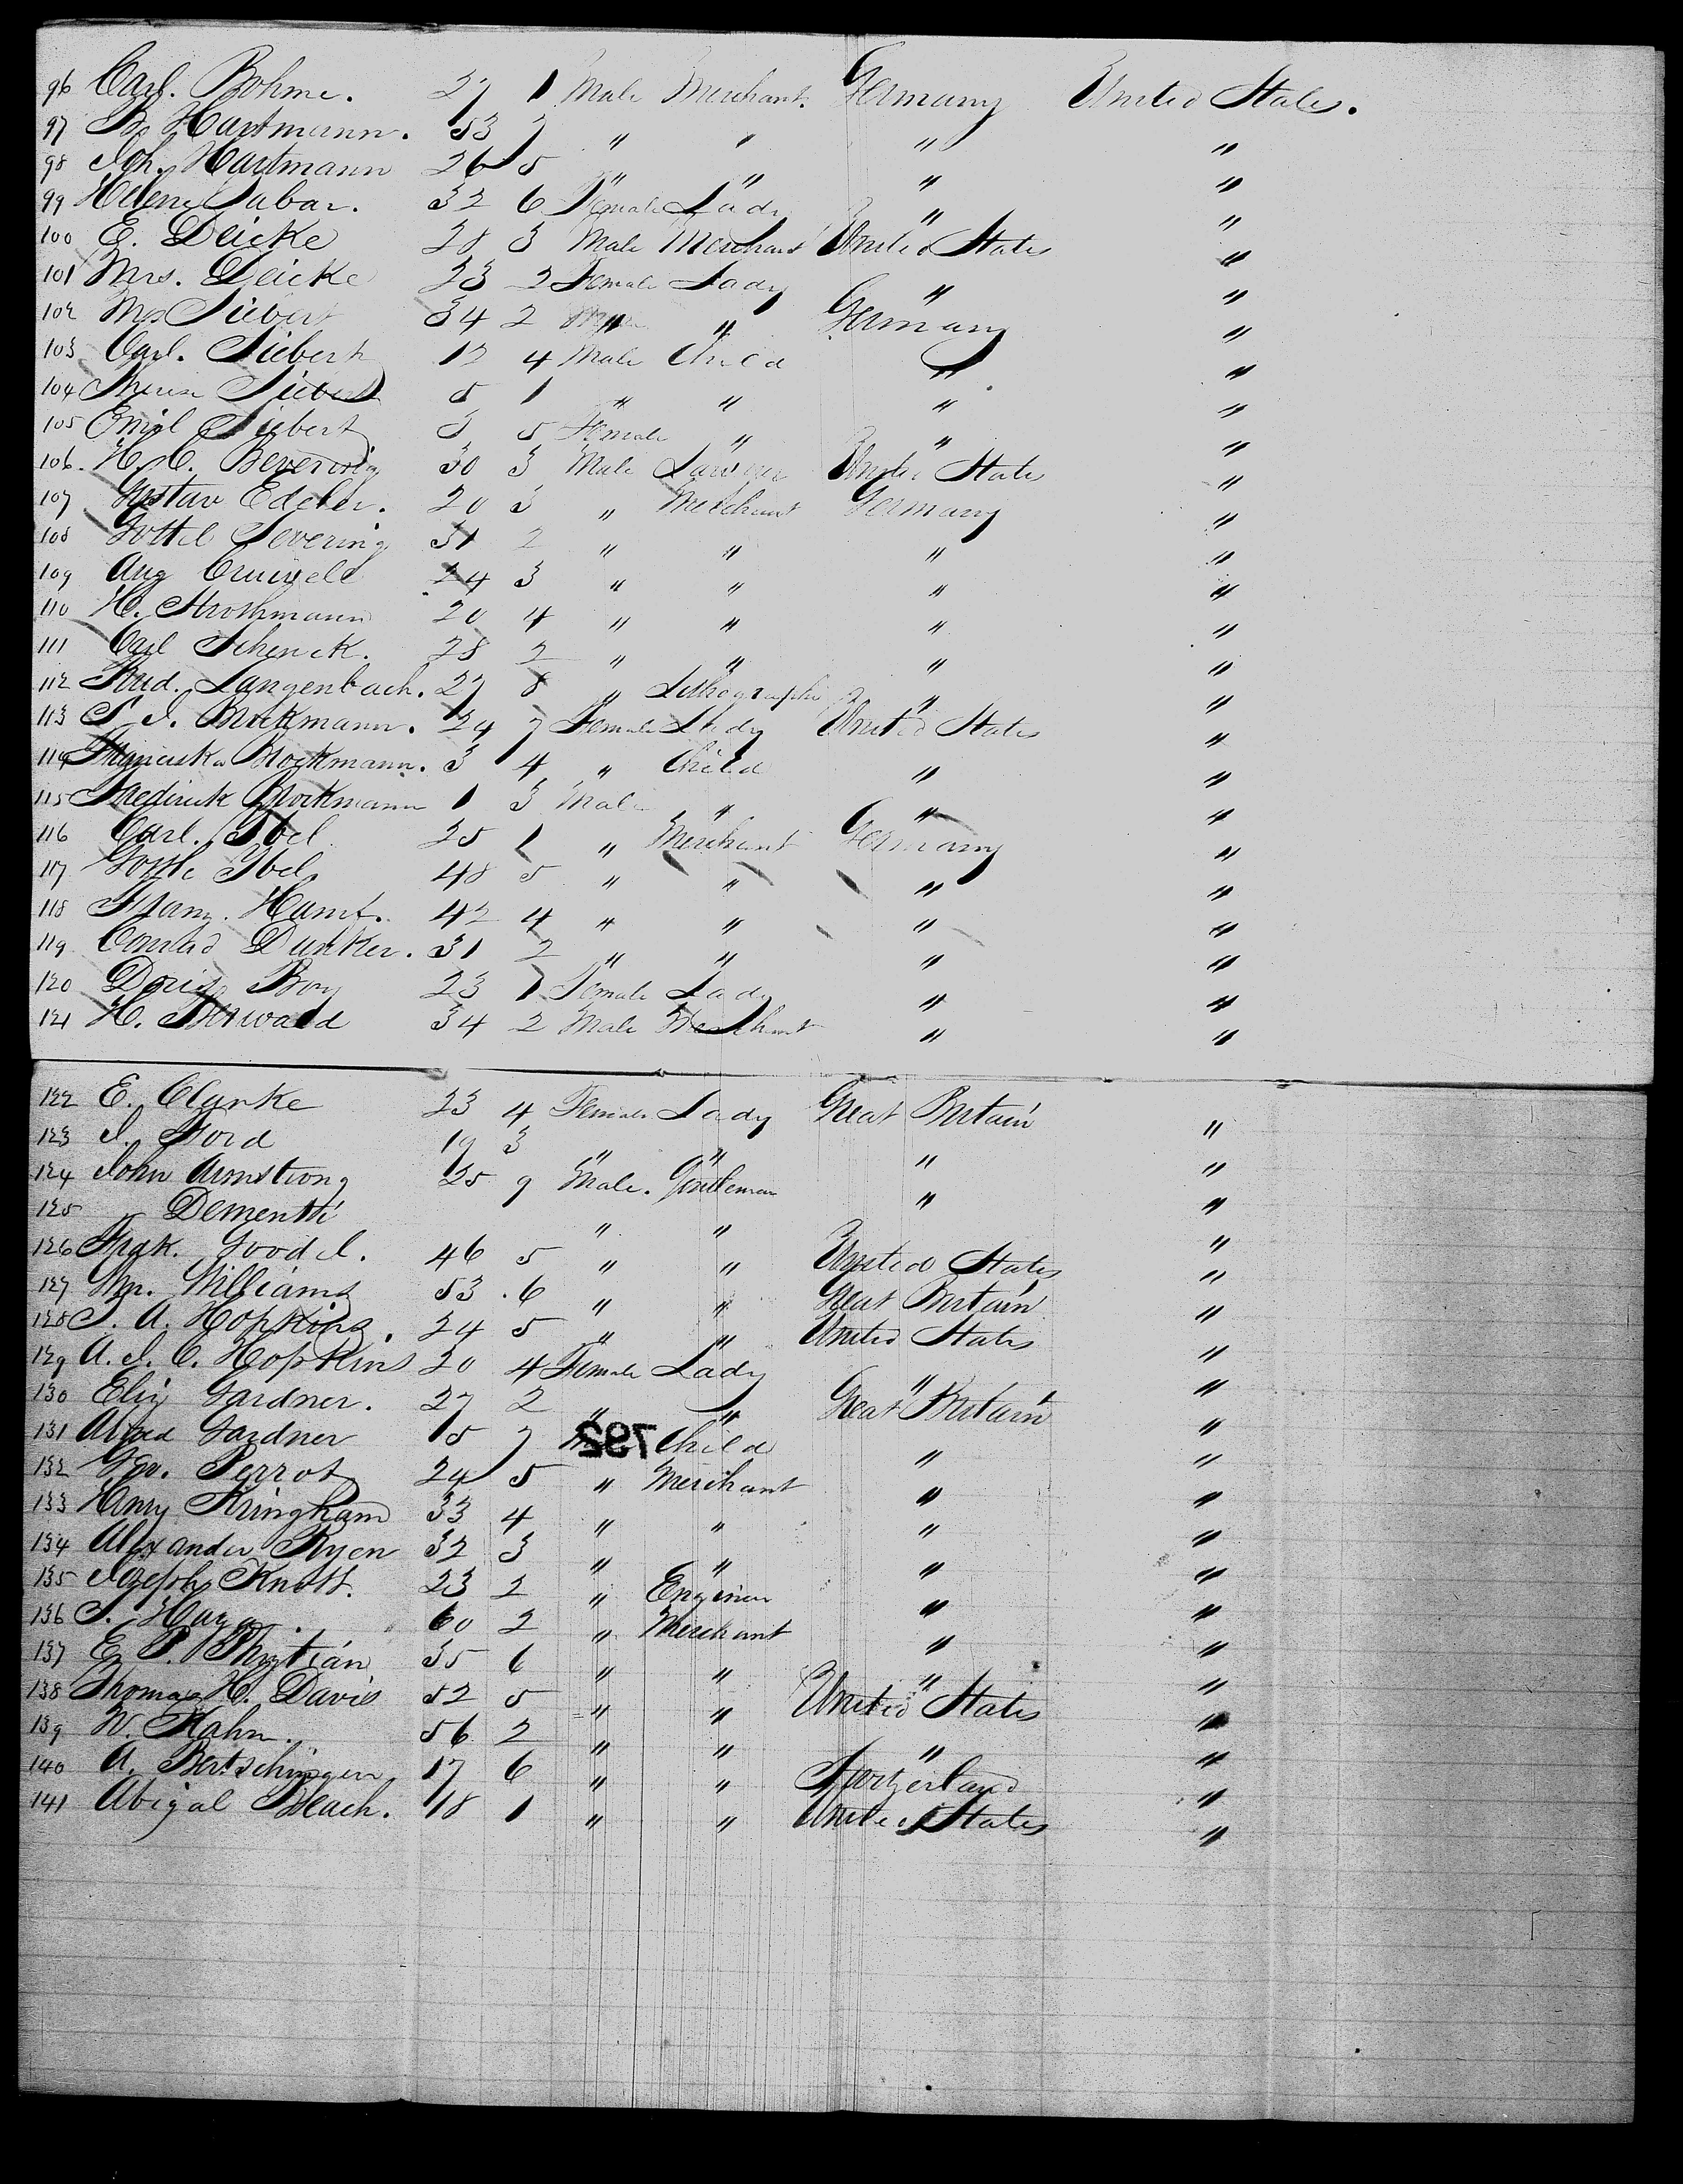 96 Carl. Bohme. 27 1 Male Merchant. Germany United States.
97 B. Hartmann. 53 7 " " " "
98 Joh. Hartmann 26 5 " " " "
99 Helene Sabar. 32 6 Female Lady " "
100 E. Deicke 28 3 Male Merchant United States "
101 Mrs. Deicke 23 2 Female Lady " "
102 Mrs Siebert 34 2 " " Germany "
103 Carl. Siebert 12 4 Male Child " "
104 Siebert 5 1 " " " "
105 Emil Siebert 3 5 Female " " "
106. H. C. 30 3 Male Lawyer United States "
107 Gustav Edeler. 20 3 " Merchant Germany "
108 Gottl Severing 31 2 " " " "
109 Aug Cruwell 24 3 " " " "
110 H. Strothmann 20 4 " " " "
111 Carl Schenck. 28 2 " " " "
112 Rud. Langenbach. 27 8 " Lithographe " "
113 S. J. Brockmann. 24 7 Female Lady United States "
114 Franciska Brockmann. 3 4 " Child " "
115 Frederick Brockmann 1 3 Male " " "
116 Carl. Ibel 25 1 " Merchant Germany "
117 Gottl. Ibel 48 5 " " " "
118 Franz. Hamt. 42 4 " " " "
119 Conrad Dunker. 31 2 " " " "
120 Doris Boy 23 1 Female Lady " "
121 H. 34 2 Male Merchant " "
122 E. Clarke 23 4 Female Lady Great Britain "
123 J. Ford 19 3 " " " "
124 John Armstrong 25 9 Male. Gentleman " "
125 Dementti " " "
126 Frdk. Goodel. 46 5 " " United States "
127 Wm. Williams 53 6 " " Great Britain "
128 S. A. Hopkins. 24 5 " " United States "
129 A. J. C. Hopkins 20 4 Female Lady " "
130 Eliz Gardner. 27 2 " " Great Britain "
131 Alfred Gardner 15 7 Child " "
792
132 Geo. Perrot 24 5 " Merchant " "
133 Henry Kringham 33 4 " " " "
134 Alexander Ryen 32 3 " " " "
135 Joseph Knott. 23 2 " Engineer " "
136 S. 60 2 " Merchant " "
137 E. P. Phytian 35 6 " " " "
138 Thomas H. Davis 52 5 " " United States "
139 W. Kahn. 56 2 " " " "
140 A. Bertschinger 17 6 " " Switzerland "
141 Abigal Beach. 18 1 " " United States "